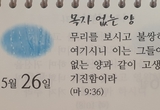 목자 없는 양
무리를 보시고 불쌍히
여기시니 이는 그들이
5월 26일
없는 양과 같이 고생
기진함이라
(마 9:36)